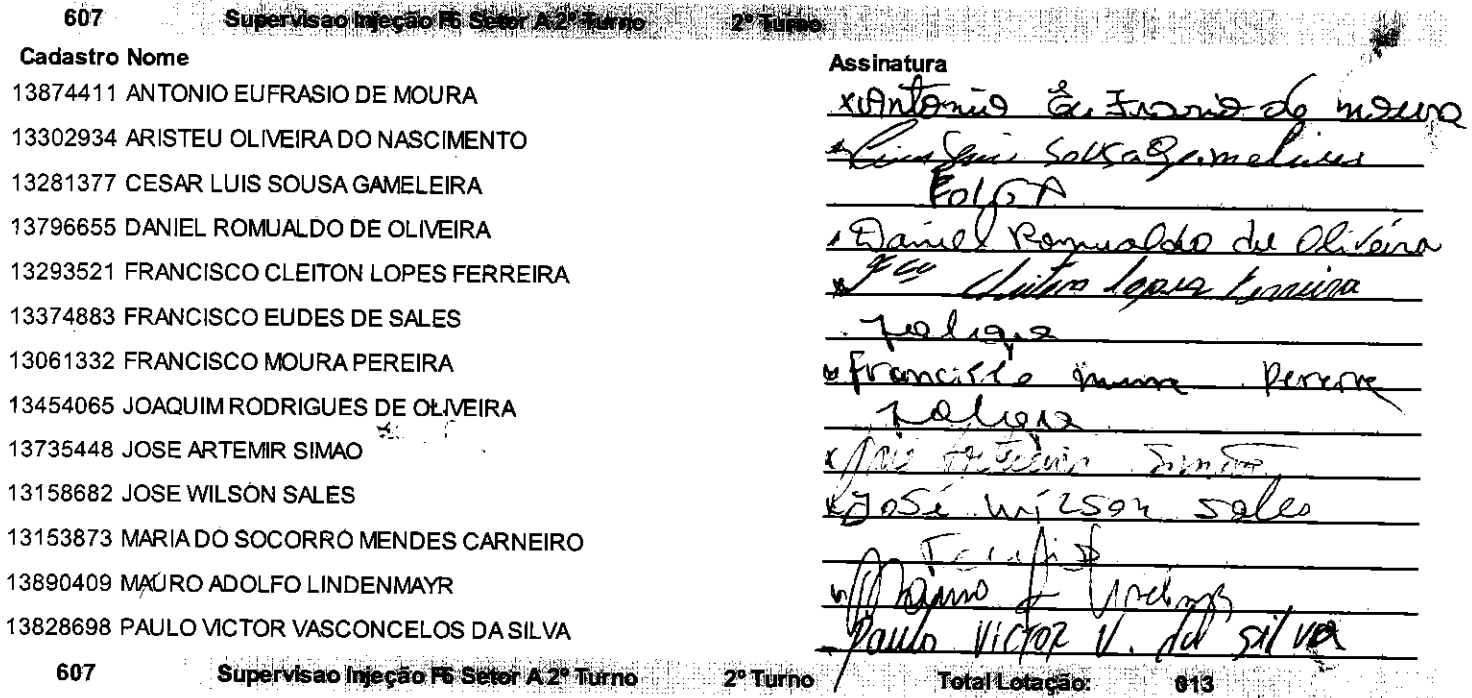 607 Supervisao Injeção F6 Setor A 2º Turno 2º Turno
Cadastro Nome Assinatura
13874411 ANTONIO EUFRASIO DE MOURA Antonio Eufrasio de moura
13302934 ARISTEU OLIVEIRA DO NASCIMENTO Sousa Gameleira
13281377 CESAR LUIS SOUSA GAMELEIRA FOLGA
13796655 DANIEL ROMUALDO DE OLIVEIRA Daniel Romualdo de Oliveira
13293521 FRANCISCO CLEITON LOPES FERREIRA Fco Cleiton Lopes Ferreira
13374883 FRANCISCO EUDES DE SALES
13061332 FRANCISCO MOURA PEREIRA Francisco
13454065 JOAQUIM RODRIGUES DE OLIVEIRA
13735448 JOSE ARTEMIR SIMAO José Artemir Simão
13158682 JOSE WILSON SALES José Wilson Sales
13153873 MARIA DO SOCORRO MENDES CARNEIRO
13890409 MAURO ADOLFO LINDENMAYR Mauro
13828698 PAULO VICTOR VASCONCELOS DA SILVA Paulo Victor V. da Silva
607 Supervisao Injeção F6 Setor A 2º Turno 2º Turno Total Lotação: 013